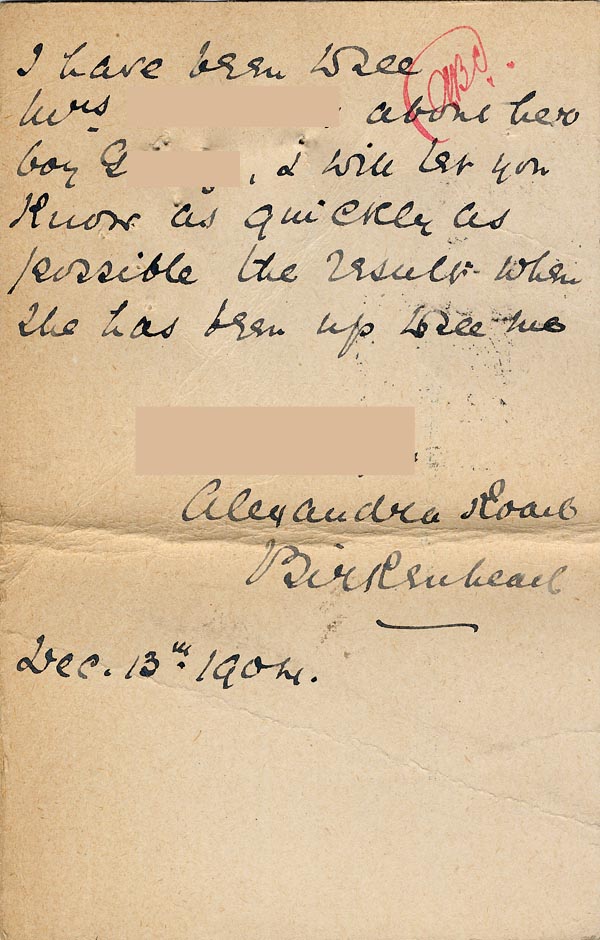 I have been to see
Mrs about her
boy G , & will let you
know as quickly as
possible the result when
she has been up to see me
Alexandra Road
Birkenhead
Dec. 13th. 1904.